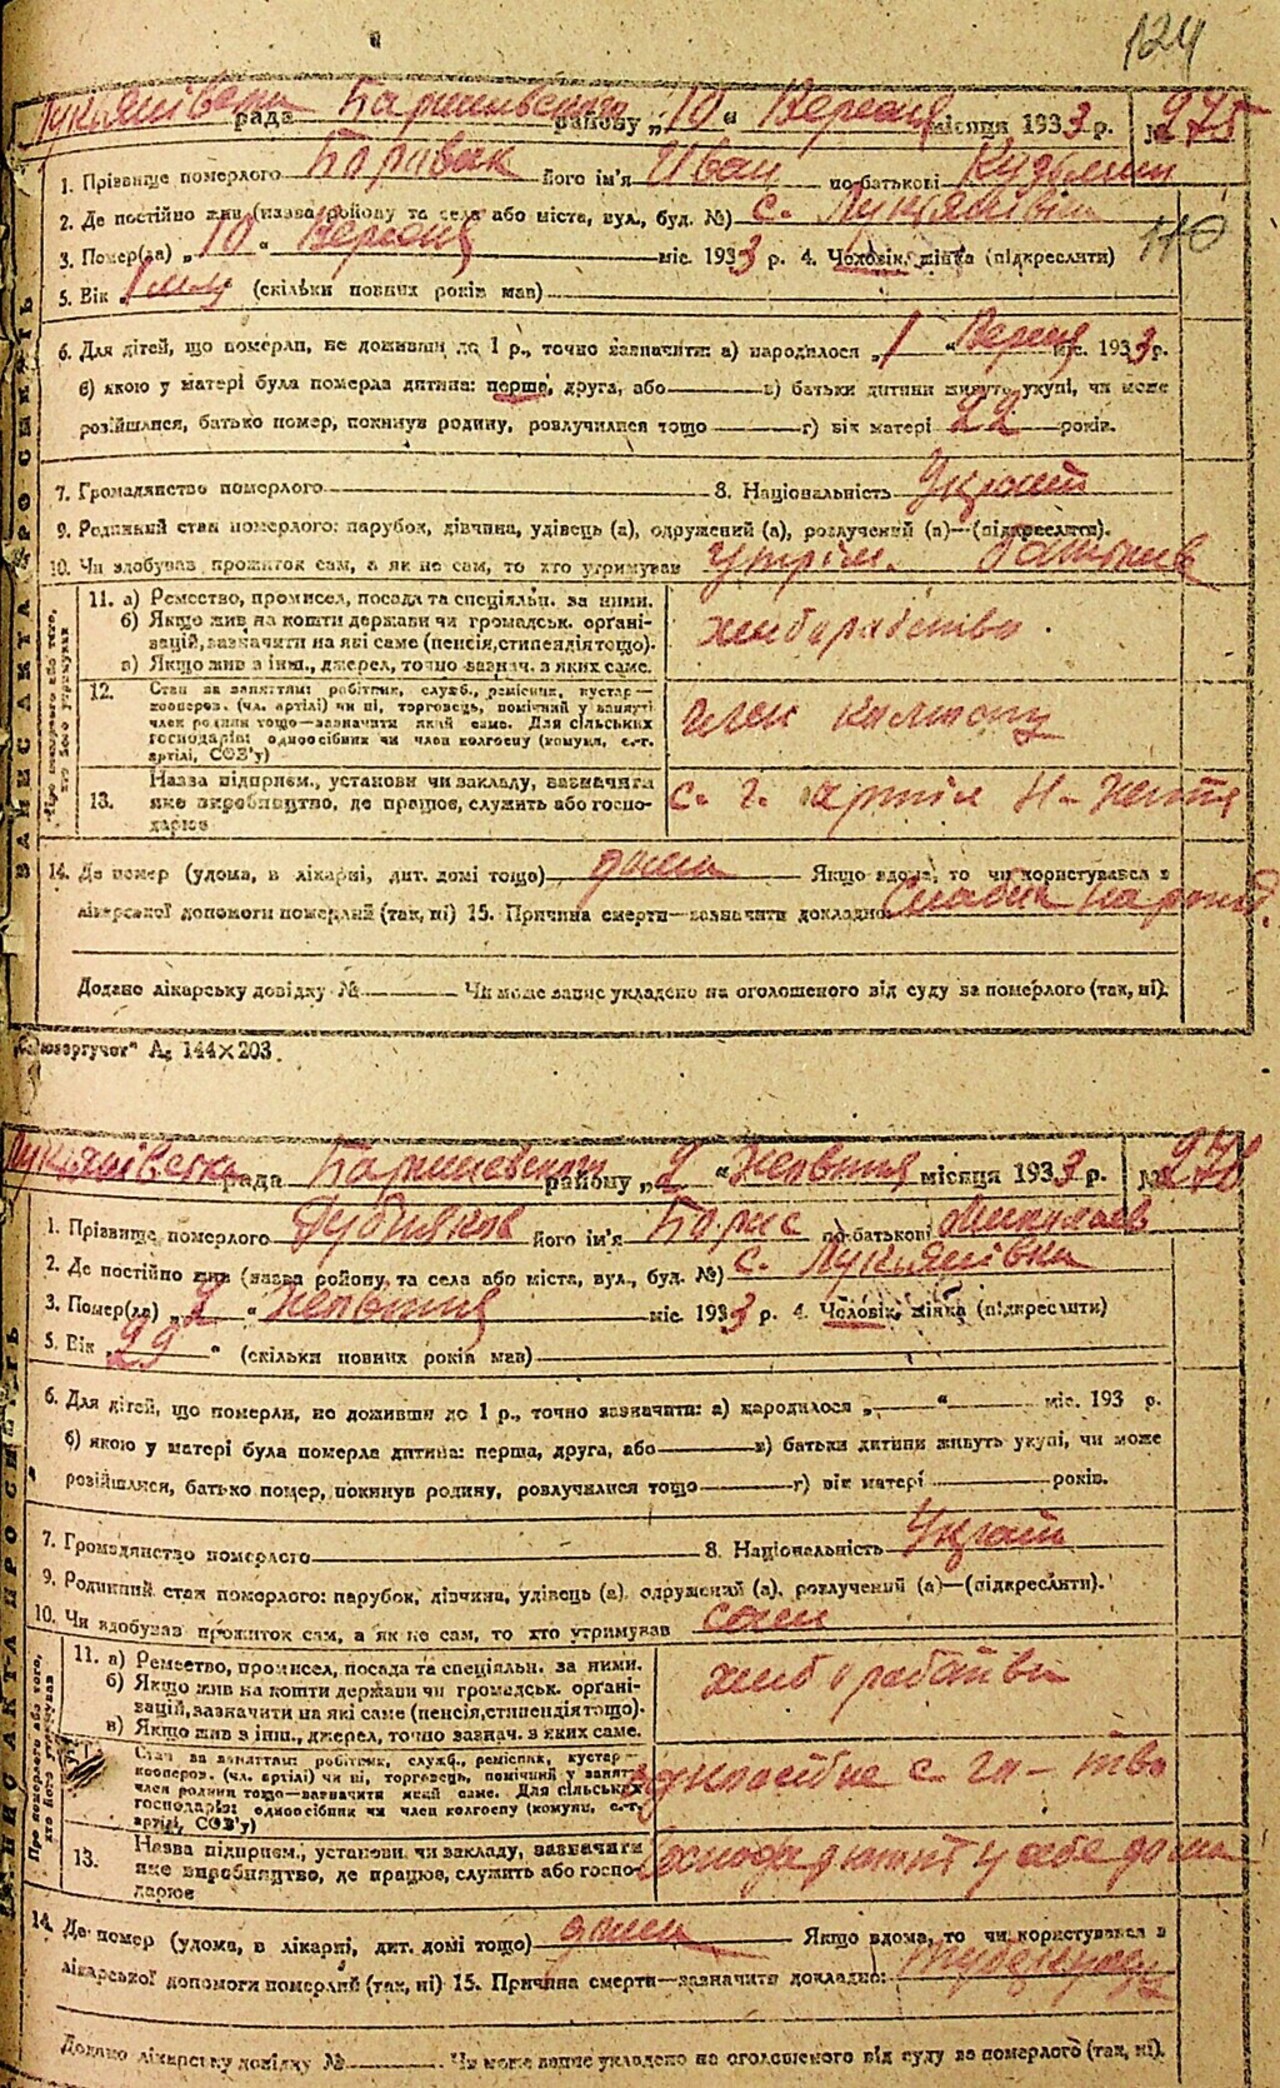 124
Лукіянівська рада Баришівського району „10“ Вересня місяця 1933 р. № 275
1. Прізвище померлого його ім'я Иван по батькові Кузьмич
2. Де постійно жив (назва району та села або міста, вул., буд. №) с. Лукіянівка
3. Помер(ла) „10“ Вересня міс. 1933 р. 4. Чоловік, жінка (підкреслити)
5. Вік „ (скільки повних років мав)
6. Для дітей, що померли, не доживши до 1 р., точно зазначити: а) народилося „1“ Вересня міс. 1933 р.
б) якою у матері була померла дитина: перша, друга, або в) батьки дитини живуть укупі, чи може
розійшлися, батько помер, покинув родину, розлучилися тощо г) вік матері 22 років.
7. Громадянство померлого 8. Національність
9. Родинний стан померлого: парубок, дівчина, удівець (а), одружений (а), розлучений (а)—(підкреслити).
10. Чи здобував прожиток сам, а як не сам, то хто утримував утрим. батьків
ЗАПИС АКТА ПРО СМЕРТЬ
Про померлого або того, хто його утримував
11. а) Ремество, промисел, посада та спеціяльн. за ними.
б) Якщо жив на кошти держави чи громадськ. органі-
зацій, зазначити на які саме (пенсія, стипендія тощо).
в) Якщо жив з інш., джерел, точно зазнач. з яких саме.
хлиборобство
12. Стан за заняттям: робітник, служб., ремісник, кустар—
кооперов. (чл. артілі) чи ні, торговець, помічний у занятті
член родини тощо—зазначити який саме. Для сільських
господарів: одноосібник чи член колгоспу (комуни, с.-г.
артілі, СОЗ'у)
член колгоспу
13. Назва підприєм., установи чи закладу, зазначити
яке виробництво, де працює, служить або госпо-
дарює
с. г. артіл
14. Де помер (удома, в лікарні, дит. домі тощо) дома Якщо вдома, то чи користувався з
лікарської допомоги померлий (так, ні) 15. Причина смерти—зазначити докладно:
Додано лікарську довідку № Чи може запис укладено на оголошеного від суду за померлого (так, ні).
„Союзоргучет“ А₅ 144×203.
Лукіянівська рада Баришевського району „2“ Жовтня місяця 1933 р. № 276
1. Прізвище померлого його ім'я Борис по батькові Миколаев
2. Де постійно жив (назва району та села або міста, вул., буд. №) с. Лукіянівка
3. Помер(ла) „2“ Жовтня міс. 1933 р. 4. Чоловік, жінка (підкреслити)
5. Вік „29“ (скільки повних років мав)
6. Для дітей, що померли, не доживши до 1 р., точно зазначити: а) народилося „ “ міс. 193 р.
б) якою у матері була померла дитина: перша, друга, або в) батьки дитини живуть укупі, чи може
розійшлися, батько помер, покинув родину, розлучилися тощо г) вік матері років.
7. Громадянство померлого 8. Національність
9. Родинний стан померлого: парубок, дівчина, удівець (а), одружений (а), розлучений (а)—(підкреслити).
10. Чи здобував прожиток сам, а як не сам, то хто утримував сам
ЗАПИС АКТА ПРО СМЕРТЬ
Про померлого або того, хто його утримував
11. а) Ремество, промисел, посада та спеціяльн. за ними.
б) Якщо жив на кошти держави чи громадськ. органі-
зацій, зазначити на які саме (пенсія, стипендія тощо).
в) Якщо жив з інш., джерел, точно зазнач. з яких саме.
Стан за заняттям: робітник, служб., ремісник, кустар—
кооперов. (чл. артілі) чи ні, торговець, помічний у занятті
член родини тощо—зазначити який саме. Для сільських
господарів: одноосібник чи член колгоспу (комуни, с.-г.
артілі, СОЗ'у)
одноосібне
13. Назва підприєм., установи чи закладу, зазначити
яке виробництво, де працює, служить або госпо-
дарює
у себе дома
14. Де помер (удома, в лікарні, дит. домі тощо) дома Якщо вдома, то чи користувався з
лікарської допомоги померлий (так, ні) 15. Причина смерти—зазначити докладно:
Додано лікарську довідку № Чи може запис укладено на оголошеного від суду за померлого (так, ні).